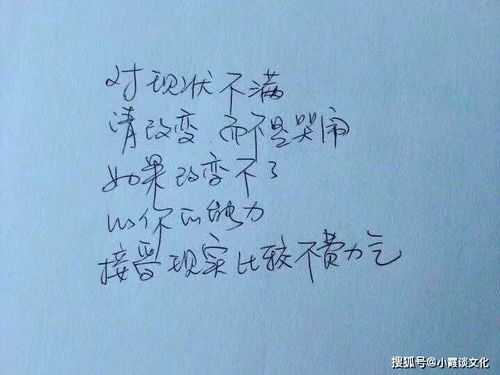 对现状不满
请改变 而不是哭闹
如果改变不了
以你的能力
接受现实比较不费力气
搜狐号@小霞谈文化